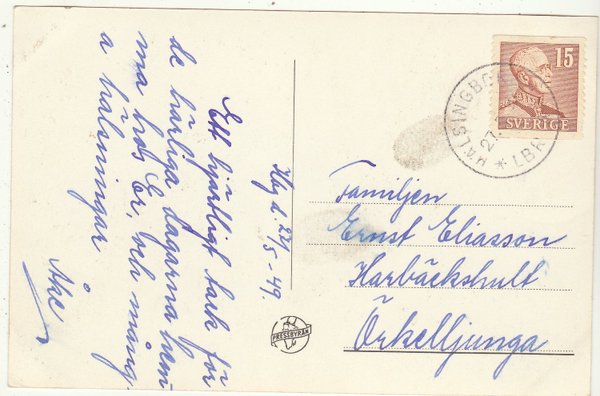 Hbg d. 27/5-49.
Ett hjärtligt tack för
de härliga dagarna hem-
ma hos Er, och mång-
a hälsningar
Åke
Familjen
Ernst Eliasson
Harbäckshult
Örkelljunga
15
SVERIGE
HÄLSINGBORG
LBR
27
PRESSBYRÅN